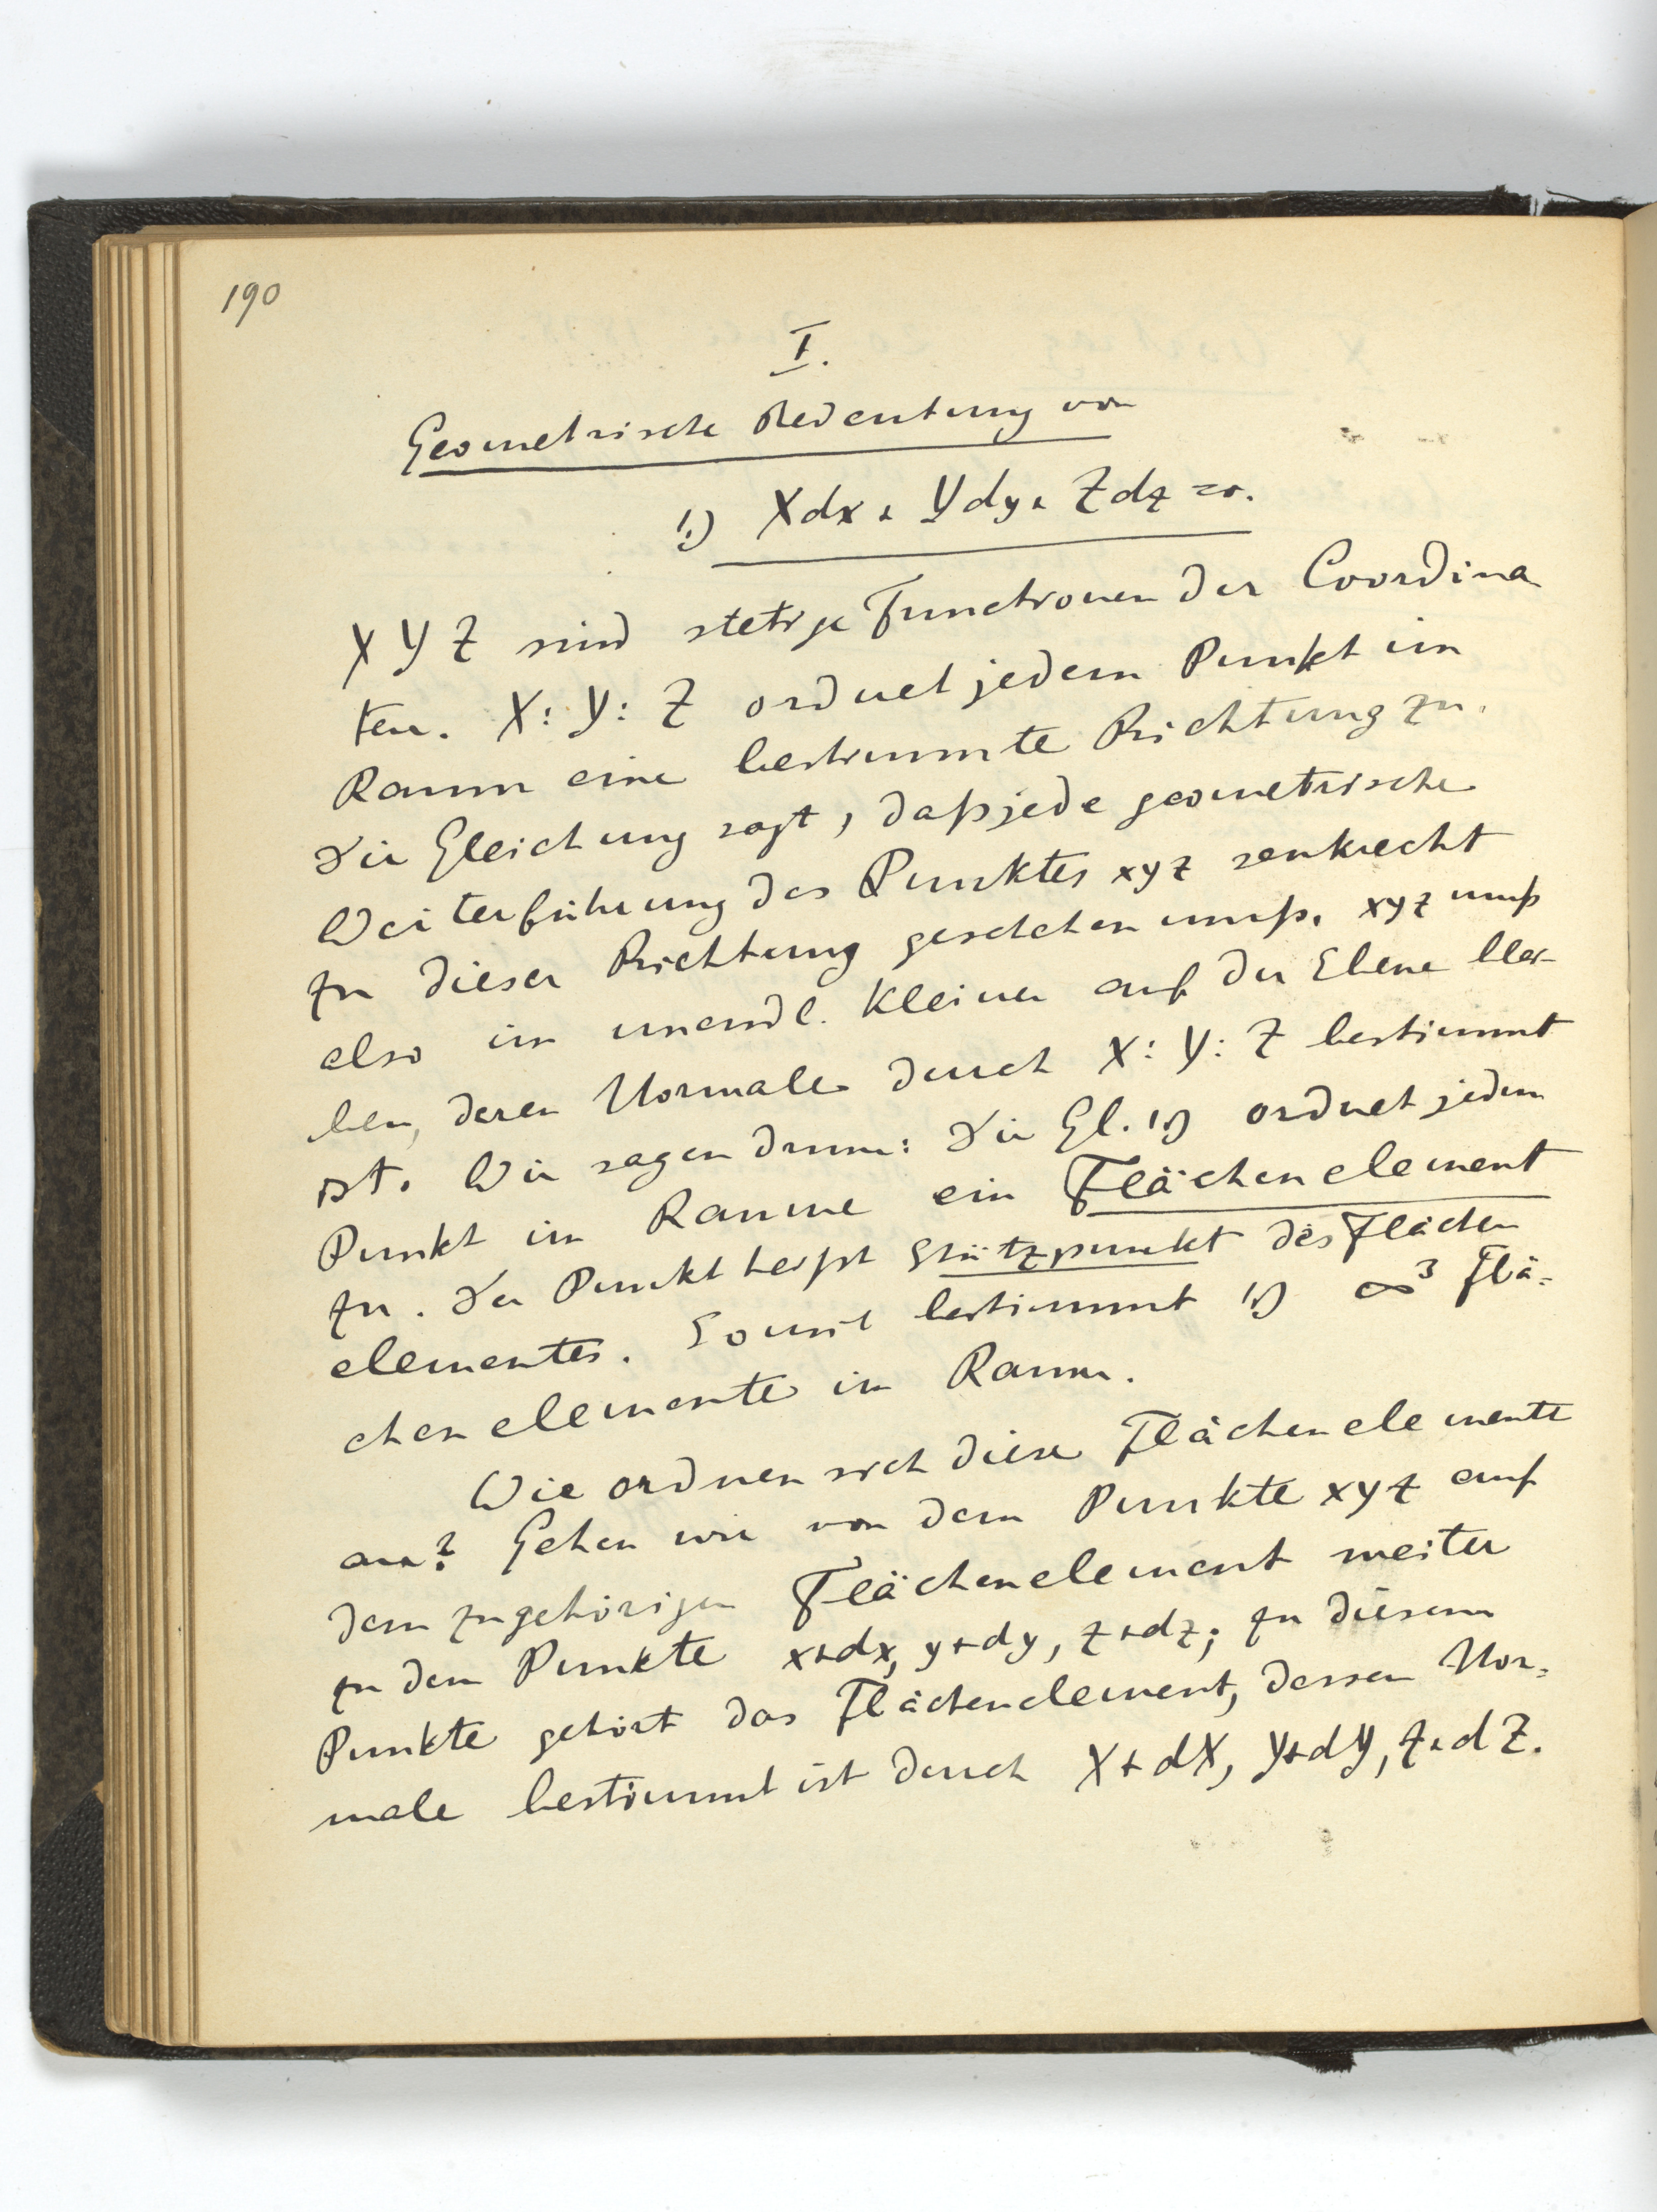 190
I.
Geometrische Bedeutung von
1.) Xdx + Ydy + Zdz = 0.
X Y Z sind stetige Functionen der Coordina
ten. X : Y : Z ordnet jedem Punkt im
Raum eine bestimmte Richtung zu.
Die Gleichung sagt, daß jede geometrische
Weiterführung des Punktes xyz senkrecht
zu dieser Richtung geschehen muß. xyz muß
also im unendl. Kleinen auf der Ebene blei-
ben, deren Normale durch X : Y : Z bestimmt
ist. Wir sagen drum: Die Gl. 1.) ordnet jedem
Punkt im Raume ein Flächenelement
zu. Der Punkt heißt Stützpunkt des Flächen
elementes. Somit bestimmt 1.) ∞³ Flä=
chenelemente im Raum.
Wie ordnen sich diese Flächenelemente
an? Gehen wir von dem Punkte xyz auf
dem zugehörigen Flächenelement weiter
zu dem Punkte x+dx, y+dy, z+dz; zu diesem
Punkte gehört das Flächenelement, dessen Nor=
male bestimmt ist durch X + dX, Y+dY, Z+dZ.